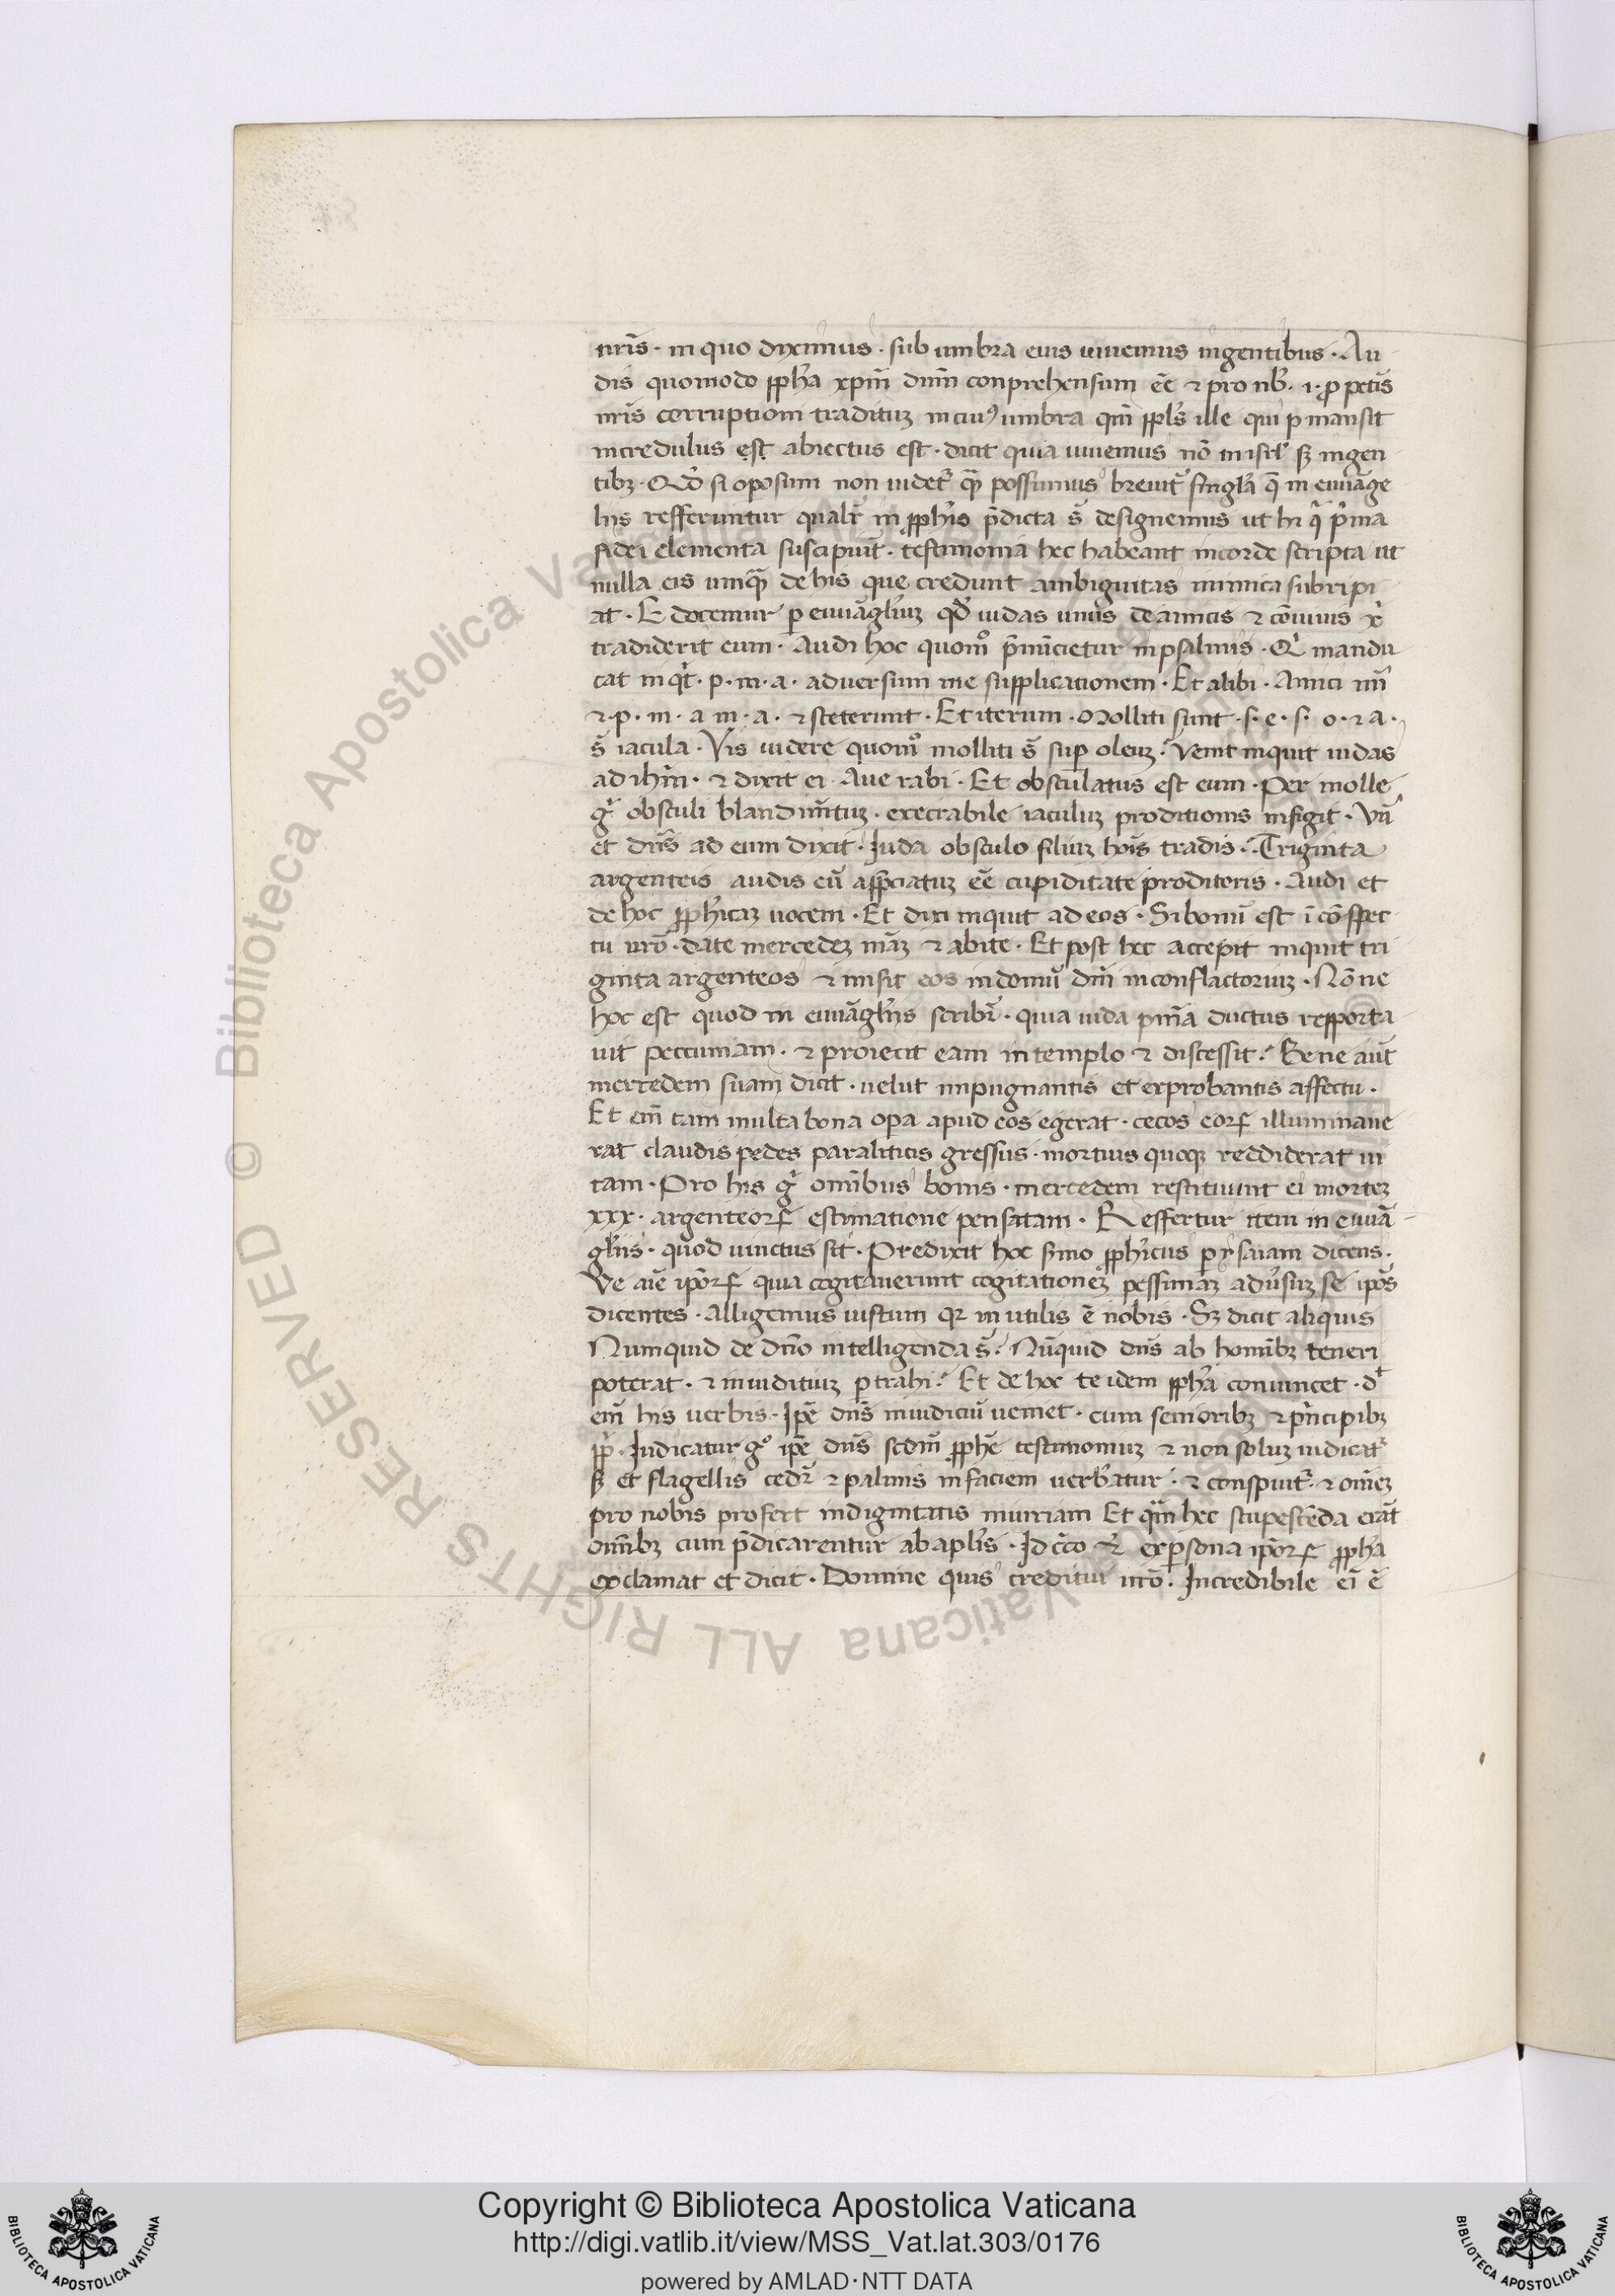 nr̄is · in quo diximus · sub umbra eius uiuemus ingentibus · Au
dis quomodo ꝓph̄a xp̄m dn̄m conprehensum eē ⁊ pro nob̄ · i · ꝓ pctīs
nr̄is corruptioni tradituꝫ in cuiꝰ umbra qm̄ ppl̄s ille qui ꝑmansit
incredulus est abiectus est · dicit quia uiuemus nō in isrl̄ sꝫ ingen
tibꝫ · Qđ si oposum non uidet᷑ qꝫ possumus breuit᷑ singl̄a q̄ in euuāge
liis refferuntur qualr̄ in ꝓph̄is p̄dicta s̄ designemus ut hi q̄ p̄ma
fidei elementa suscipiūt · testimonia hec habeant incorde scripta ut
nulla eis umqꝫ de his que credunt ambiguitas inimica subripi
at · Edocemur ꝑ euuāgliuꝫ qđ iudas unus de amicis ⁊ cōuiuis xp̄i
tradiderit eum · Audi hoc quomō p̄nūcietur in psalmis · Qi mandu
cat inqt̄ · p · m · a · adversum me supplicationem · Et alibi · Amici mī
⁊ · p · m · a m · a · ⁊ steterunt · Et iterum · Molliti sunt · s · e · s · o · ⁊ a ·
s̄ iacula · Vis uidere quomō molliti s̄ suꝑ oleuꝫ · Venit inquit iudas
ad ih̄m · ⁊ dixit ei · Aue rabi · Et obsculatus est eum · Per molle
g̊ obsculi blandim̄tuꝫ · execrabile iaculuꝫ proditionis infigit · Vn̄
et dn̄s ad eum dixit · Iuda obsculo filiuꝫ ho͞is tradis · Triginta
argenteis audis eū app̄ciatuꝫ eē cupiditate proditoris · Audi et
de hoc ꝓph̄icaꝫ uocem · Et dixi inquit ad eos · Si bonū est ī cōspec
tu uro͞ · date mercedeꝫ mā ⁊ abite · Et post hec accepit inquit tri
ginta argenteos ⁊ misit eos in domū dn̄i in conflactoriuꝫ · Nōne
hoc est quod in euuāgliis scribr̄ · quia iuda pn̄ia ductus repporta
uit peccuniam · ⁊ proiecit eam in templo ⁊ discessit · Bene aūt
mercedem suam dicit · uelut impugnantis et exprobantis affectu ·
Et eni̅ tam multa bona oꝑa apud eos egerat · cecos eorꝝ illuminaue
rat claudis pedes paraliticis gressus · mortuis quoqꝫ reddiderat ui
tam · Pro his g̊ omībus bonis · mercedem restituunt ei morteꝫ
xxx · argenteorꝝ estimatione pensatam · Reffertur item in euuā
gliis · quod uinctus sit · Predixit hoc s̄mo ꝓph̄icus ꝑ ysaiam dicens ·
Ve aīe ip̄orꝝ quia cogitauerunt cogitationeꝫ pessimaꝫ adu̓suꝫ se ip̄os
dicentes · alligemus iustum qr̄ inutilis ē nobis · Sꝫ dicit aliquis
Numquid de dn̄o intelligenda s̄ · Nūquid dn̄s ab hominibꝫ teneri
poterat · ⁊ in iuditiuꝫ ꝑtrahi · Et de hoc te idem ꝓph̄a conuincet · dt̄
eni̅ his uerbis · Ip̄e dn̄s in iudiciū ueniet · cum senioribꝫ ⁊ pn̄cipibꝫ
pp̄li · Iudicatur g̊ ip̄e dn̄s scdm̄ ꝓph̄e testimoniuꝫ ⁊ non soluꝫ iudicat᷑
sꝫ et flagellis cedr̄ ⁊ palmis in faciem uerb̄atur · ⁊ conspuit᷑ · ⁊ omēꝫ
pro nobis profert indignitatis iniuriam Et qm̄ hec stupescēda erāt
omībꝫ cum p̄dicarentur ab apl̄is · Idc̄co ⁊ ex ꝑsona ip̄orꝝ ꝓph̄a
exclamat et dicit · Domine quis creditui nro͞ · Incredibile ei̅ ē
Copyright © Biblioteca Apostolica Vaticana
http://digi.vatlib.it/view/MSS_Vat.lat.303/0176
powered by AMLAD·NTT DATA